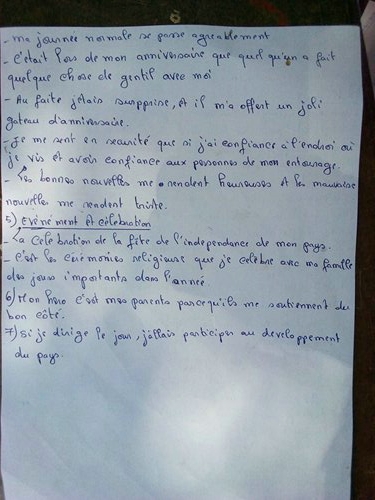 - ma journée normale se passe agreablement
- C'était lors de mon anniversaire que quel qu'un a fait
quelque chose de gentil avec moi
- Au faite j'étais surpprise, et il m'a offert un joli
gateau d'anniversaire.
- Je me sent en securité que si j'ai confiance à l'endroi où
je vis et avois confiance aux personnes de mon entourage.
- Les bonnes nouvelles me rendent heureuses et les mauvaise
nouvelles me rendent triste.
5) Evénement et célébration
- La Celebration de la fête de l'independance de mon pays.
- C'est les cérémonies religieuse que je celebre avec ma famille
des jours importants dans l'année.
6) Mon hero c'est mes parents parcequ'ils me soutiennent du
bon côté.
7) Si je dirige le jour, j'allais participer au developpement
du pays.